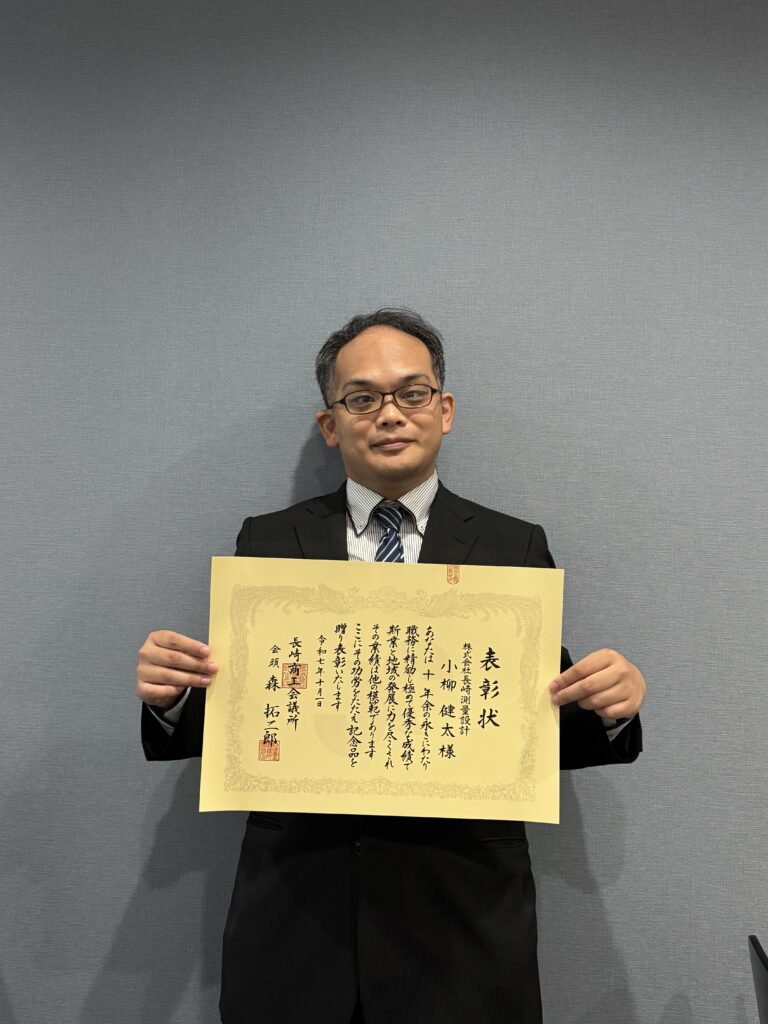 表彰状
株式会社長崎測量設計
小柳健太様
あなたは十年余の永きにわたり
職務に精励し極めて優秀な成績で
斯業と地域の発展に力を尽くされ
その業績は他の模範であります
ここにその功労をたたえ記念品を
贈り表彰いたします
令和七年十月一日
長崎商工会議所
会頭 森拓二郎